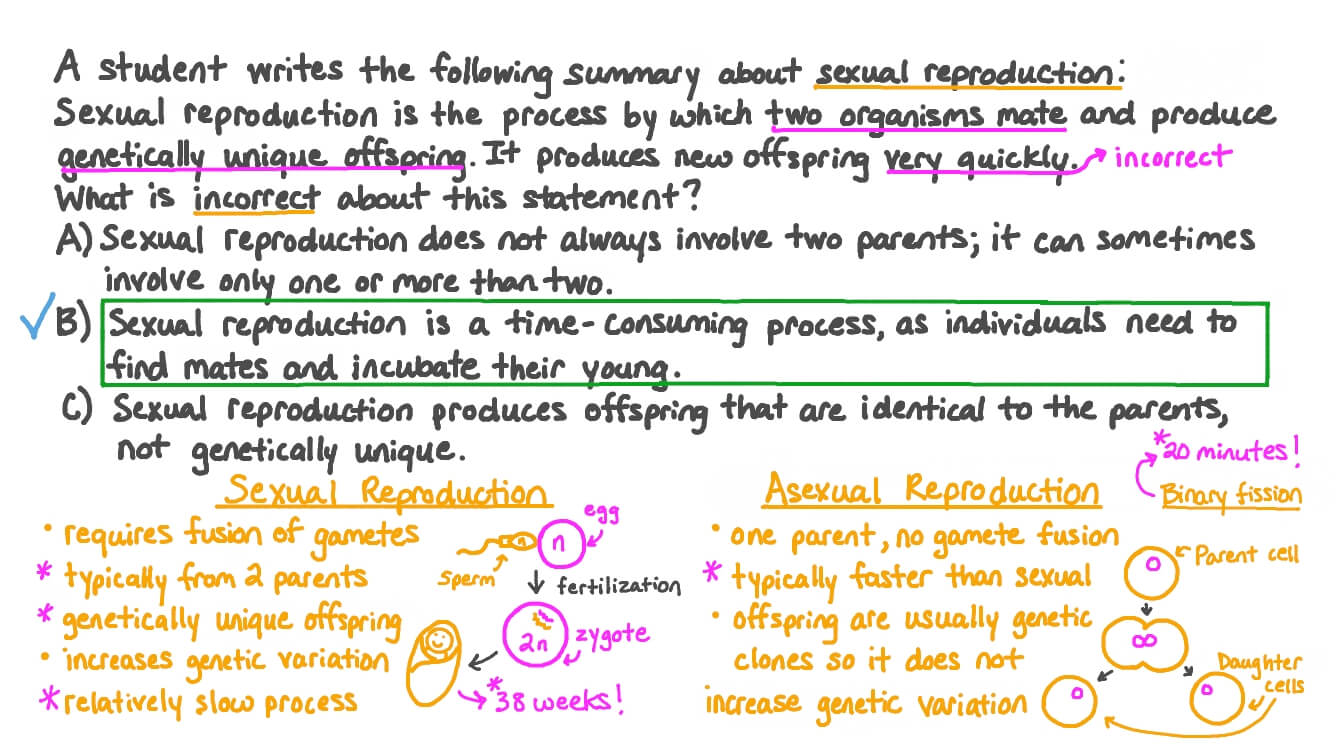 A student writes the following summary about sexual reproduction:
Sexual reproduction is the process by which two organisms mate and produce
genetically unique offspring. It produces new offspring very quickly. incorrect
What is incorrect about this statement?
A) Sexual reproduction does not always involve two parents; it can sometimes
involve only one or more than two.
B) Sexual reproduction is a time-consuming process, as individuals need to
find mates and incubate their young.
C) Sexual reproduction produces offspring that are identical to the parents,
not genetically unique.
Sexual Reproduction
• requires fusion of gametes
* typically from 2 parents
* genetically unique offspring
• increases genetic variation
* relatively slow process
egg
n
n
sperm
fertilization
2n
zygote
*38 weeks!
Asexual Reproduction
*20 minutes!
Binary fission
• one parent, no gamete fusion
* typically faster than sexual
• offspring are usually genetic
clones so it does not
increase genetic variation
Parent cell
Daughter
cells